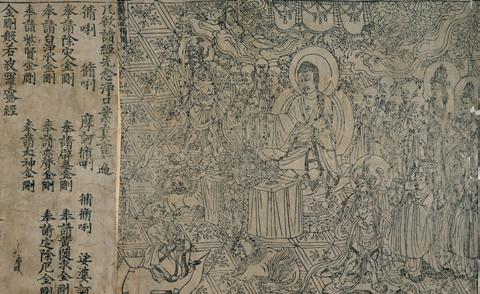 凡欲讀經先念淨口業真言一遍
脩唎 脩唎 摩訶脩唎 脩脩唎 婆訶
奉請除災金剛 奉請辟毒金剛 奉請黃隨求金剛
奉請白淨水金剛 奉請赤聲金剛 奉請定除厄金剛
奉請紫賢金剛 奉請大神金剛
金剛般若波羅蜜經